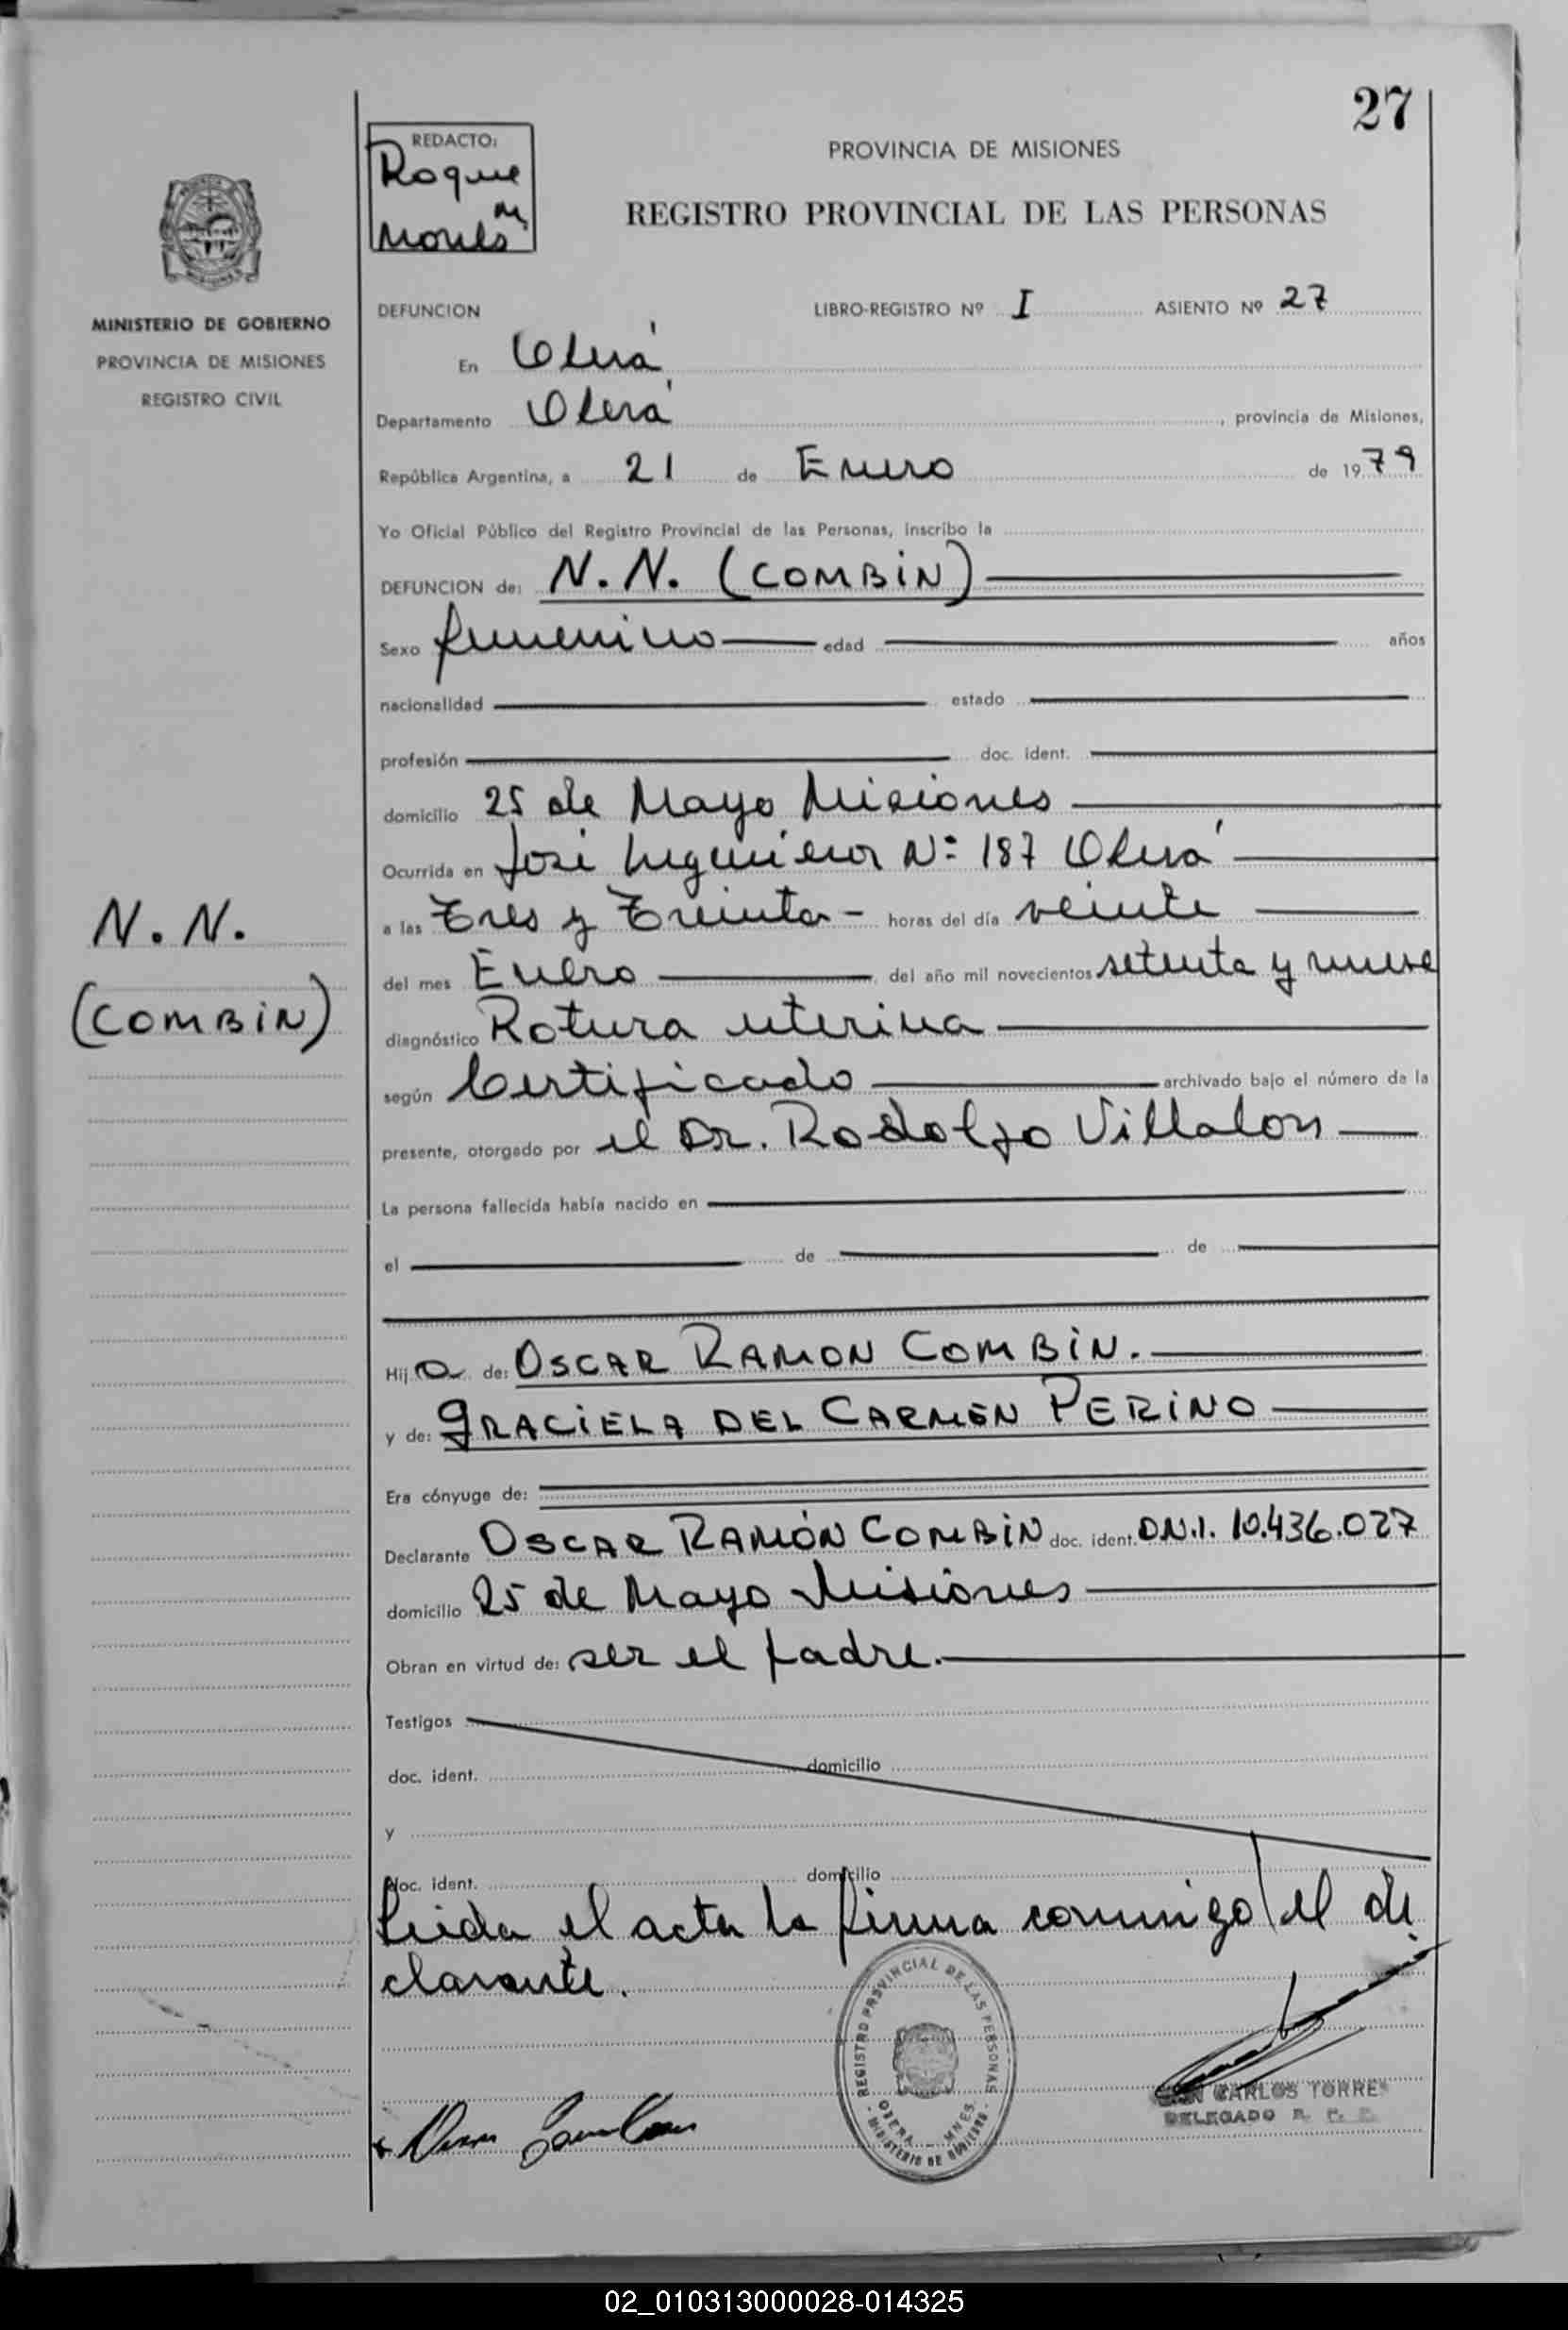 27
REDACTO:
Roque
M.
PROVINCIA DE MISIONES
REGISTRO PROVINCIAL DE LAS PERSONAS
MINISTERIO DE GOBIERNO
PROVINCIA DE MISIONES
REGISTRO CIVIL
DEFUNCION LIBRO-REGISTRO Nº I ASIENTO Nº 27
En Oberá
Departamento Oberá, provincia de Misiones,
República Argentina, a 21 de Enero de 1979
Yo Oficial Público del Registro Provincial de las Personas, inscribo la
DEFUNCION de: N.N. (COMBIN)
Sexo femenino edad años
nacionalidad estado
profesión doc. ident.
domicilio 25 de Mayo Misiones
Ocurrida en José Ingenieros Nº 187 Oberá
N.N.
(COMBIN)
a las Tres y Treinta - horas del día veinte
del mes Enero del año mil novecientos setenta y nueve
diagnóstico Rotura uterina
según Certificado archivado bajo el número de la
presente, otorgado por el Dr. Rodolfo Villalon
La persona fallecida había nacido en
el de de
Hija de: OSCAR RAMON COMBIN.
y de: GRACIELA DEL CARMEN PERINO
Era cónyuge de:
Declarante OSCAR RAMÓN COMBIN doc. ident. D.N.I. 10.436.027
domicilio 25 de Mayo Misiones
Obran en virtud de: ser el padre.
Testigos
doc. ident. domicilio
y
doc. ident. domicilio
Leida el acta la firma conmigo el de
clarante.
REGISTRO PROVINCIAL DE LAS PERSONAS
OBERA - MNES.
MINISTERIO DE GOBIERNO
CARLOS TORRES
DELEGADO R. P.
02_010313000028-014325